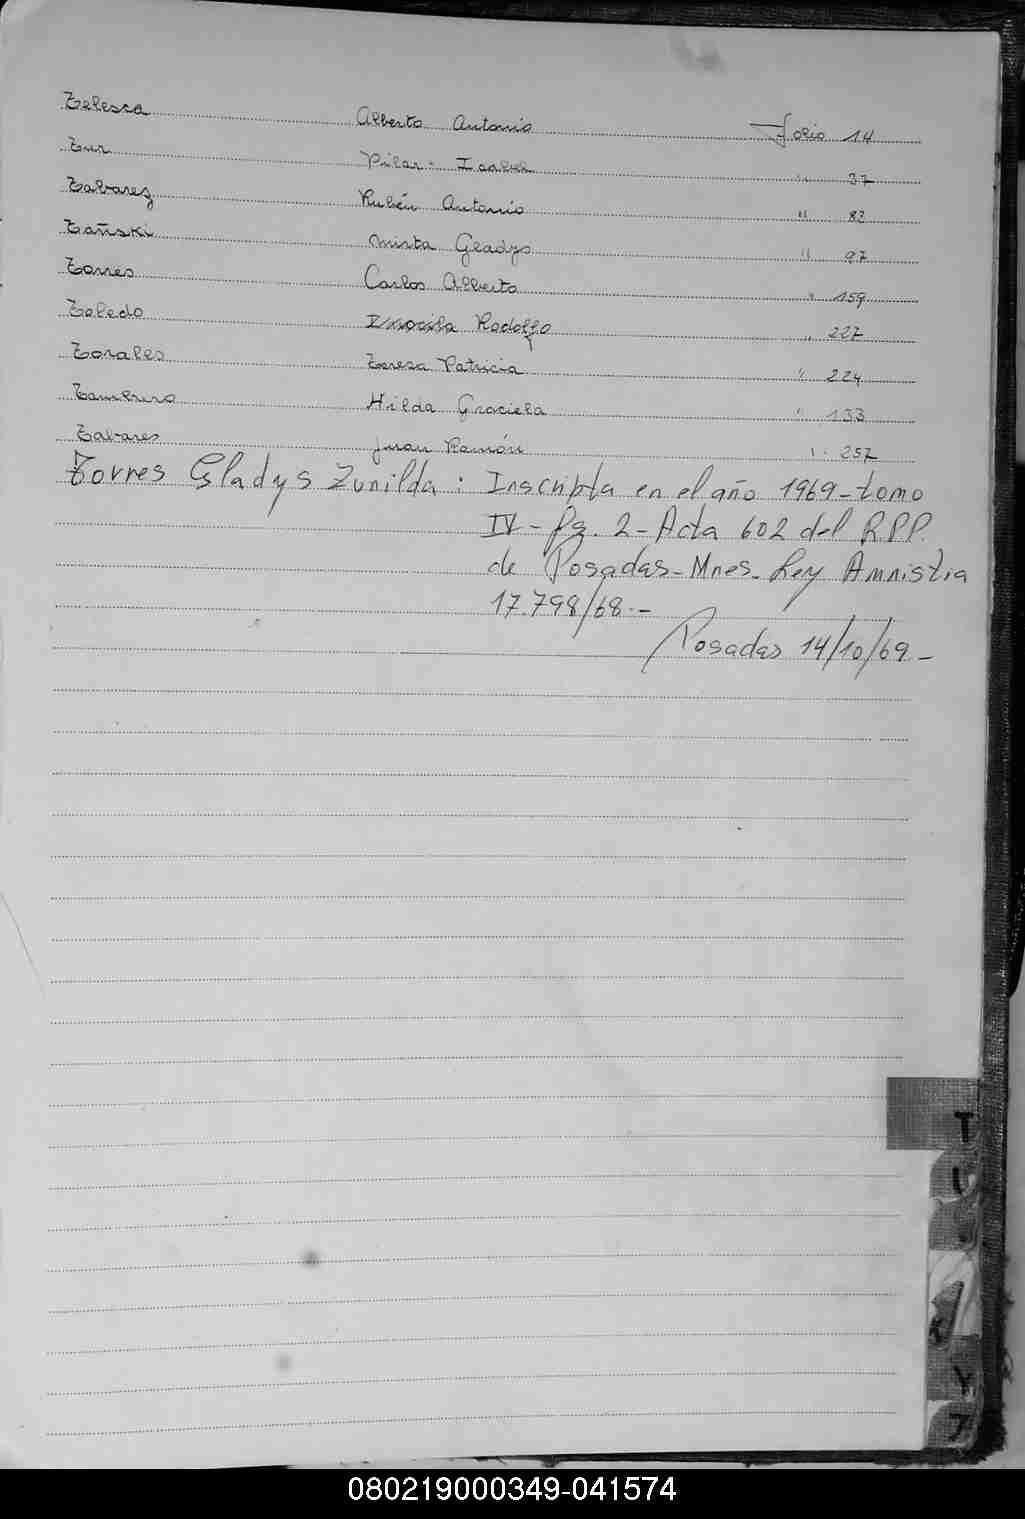 Telesca Alberto Antonio Folio 14
Tur Pilar Isabel " 37
Tabarez Rubén Antonio " 82
Tañski Mirta Gladys " 97
Torres Carlos Alberto " 159
Toledo Rodolfo " 227
Torales Teresa Patricia " 224
Hilda Graciela " 133
Tabares Juan Ramón " 257
Torres Gladys Zunilda: Inscripta en el año 1969-tomo
IV- fº. 2- Acta 602 del R.P.P.
de Posadas-Mnes. Ley Amnistia
17.798/68.-
Posadas 14/10/69.-
T
U
Y
Z
080219000349-041574